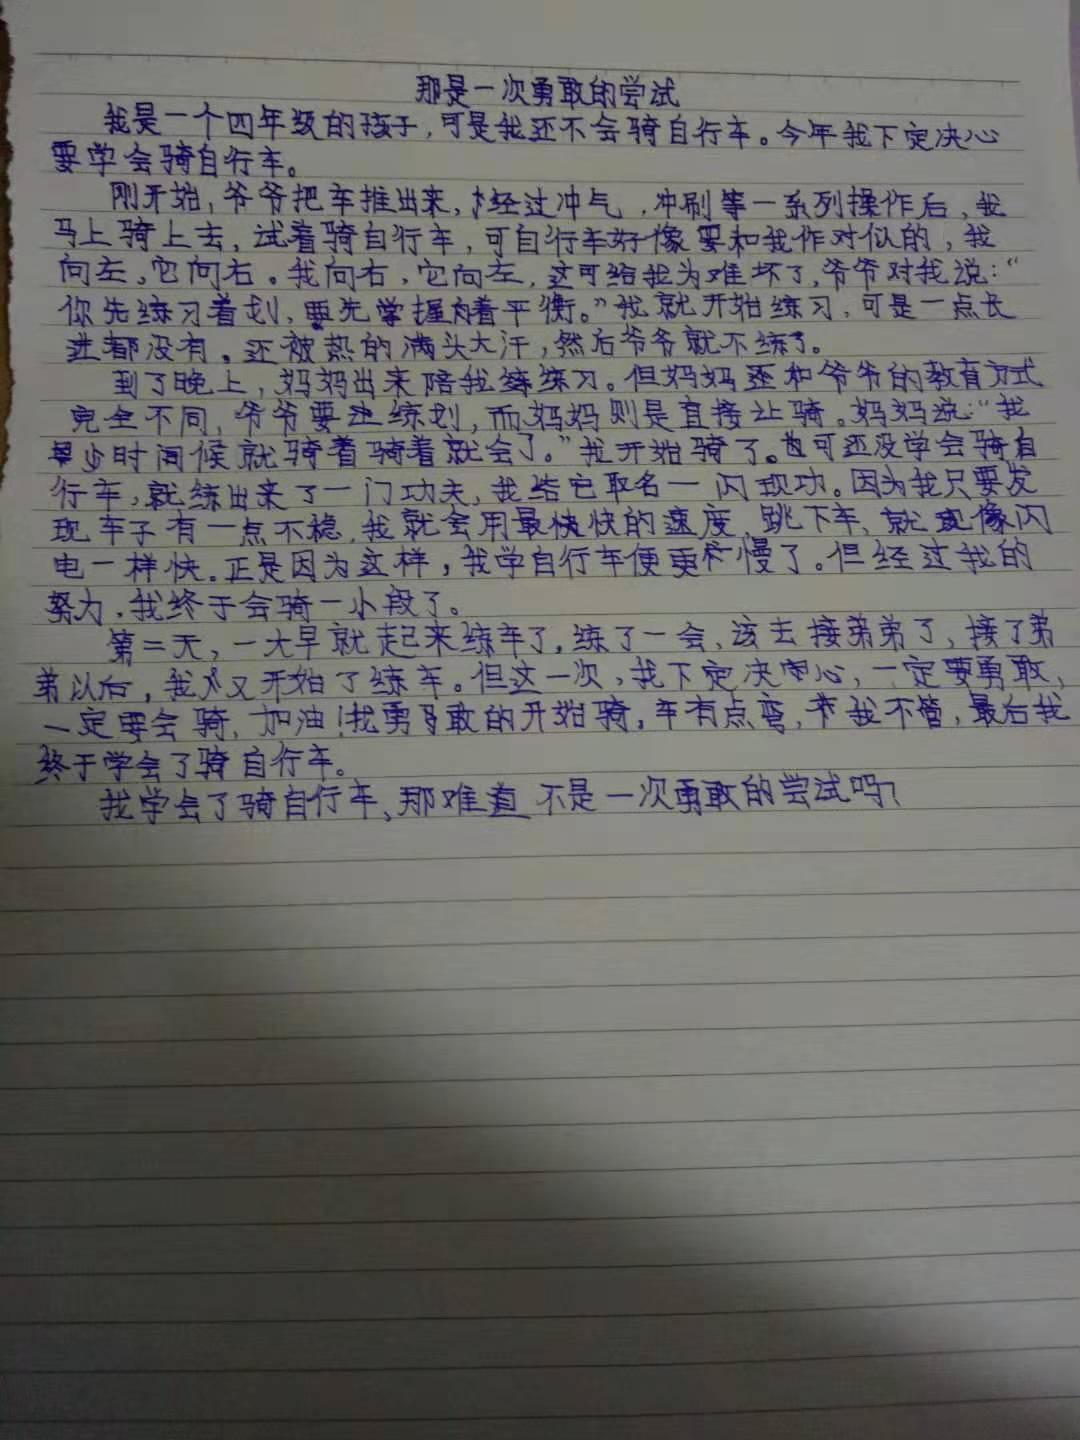 那是一次勇敢的尝试
我是一个四年级的孩子，可是我还不会骑自行车。今年我下定决心
要学会骑自行车。
刚开始，爷爷把车推出来，经过冲气，冲刷等一系列操作后，我
马上骑上去，试着骑自行车，可自行车好像要和我作对似的，我
向左，它向右。我向右，它向左，这可给我为难坏了，爷爷对我说：“
你先练习着划，要先掌握着平衡。”我就开始练习，可是一点长
进都没有。还被热的满头大汗，然后爷爷就不练了。
到了晚上，妈妈出来陪我练练习。但妈妈还和爷爷的教育方式
完全不同，爷爷要边练划，而妈妈则是直接让骑。妈妈说：“我
少时间候就骑着骑着就会了。”我开始骑了。可还没学会骑自
行车，就练出来了一门功夫，我给它取名一闪现功。因为我只要发
现车子有一点不稳，我就会用最快快的速度，跳下车，就像闪
电一样快。正是因为这样，我学自行车便更慢了。但经过我的
努力，我终于会骑一小段了。
第二天，一大早就起来练车了，练了一会，该去接弟弟了，接了弟
弟以后，我又开始了练车。但这一次，我下定决心，一定要勇敢，
一定要会骑，加油！我勇敢的开始骑，车有点弯，我不管，最后我
终于学会了骑自行车。
我学会了骑自行车、那难道不是一次勇敢的尝试吗？